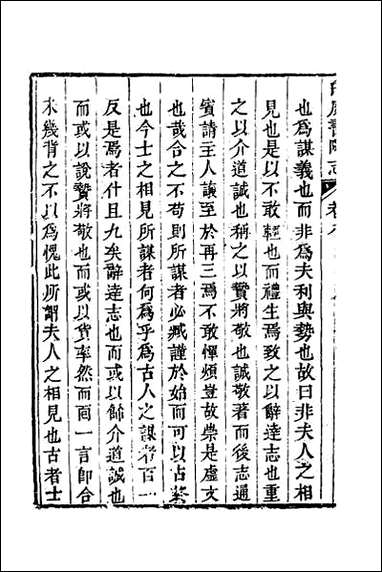 也爲謀義也而非爲夫利與勢也故曰非夫人之相
見也是以不敢輕也而禮生焉致之以辭達志也重
之以介道誠也稱之以贄將敬也誠敬著而後志通
賓請主人議至於再三焉不敢憚煩豈故崇是虛文
也哉合之不苟則所謀者必臧謹於始而可以占
也今士之相見所謀者何爲乎爲古人之謀者百一
反是焉者什且九矣辭達志也而或以餙介道誠也
而或以說贄將敬也而或以貨率然而靣一言卽合
未幾背之不以爲愧此所謂夫人之相見也古者士